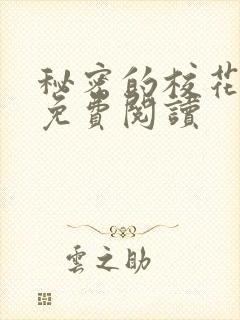 秘密的校花
免費閱讀
雲之助